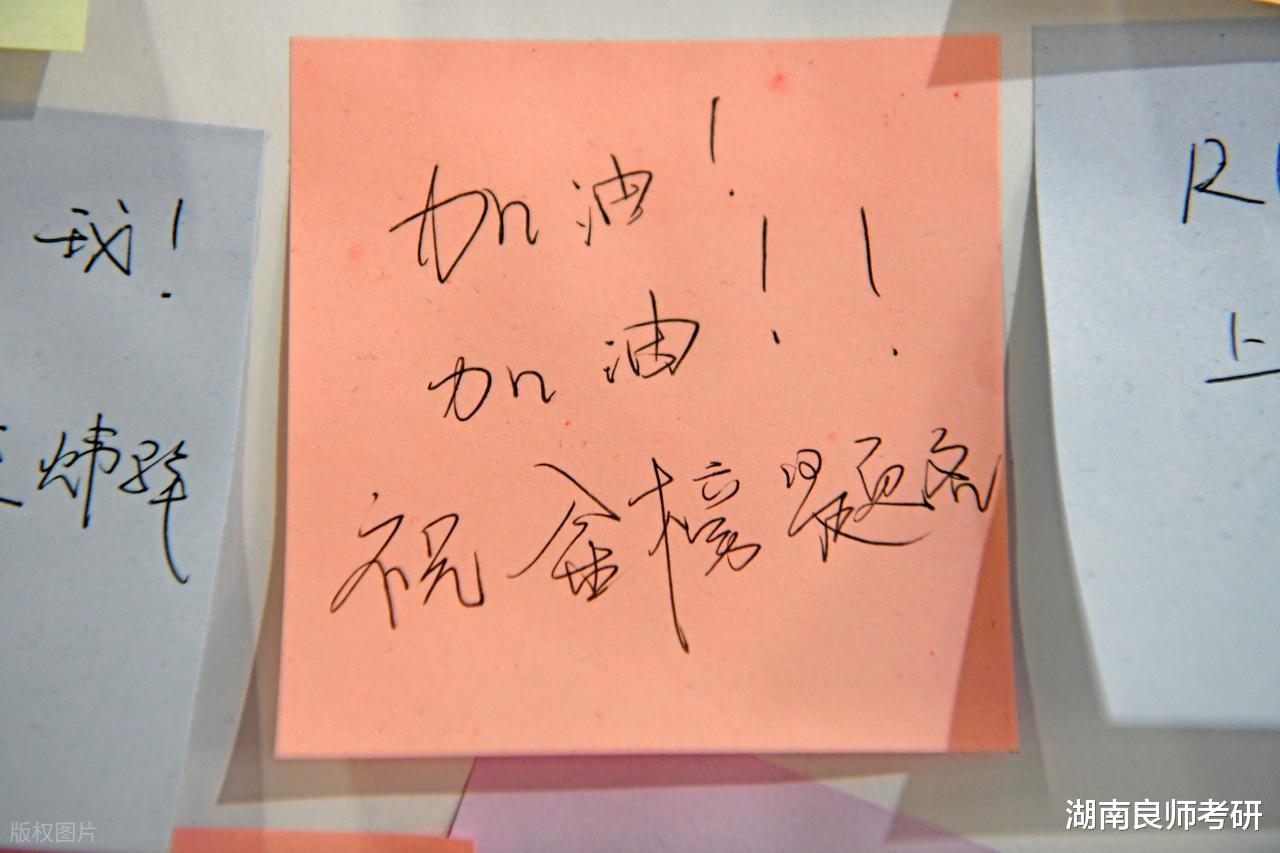 我！
炜
加油！
加油！！
祝金榜题名
R
上
版权图片
湖南良师考研